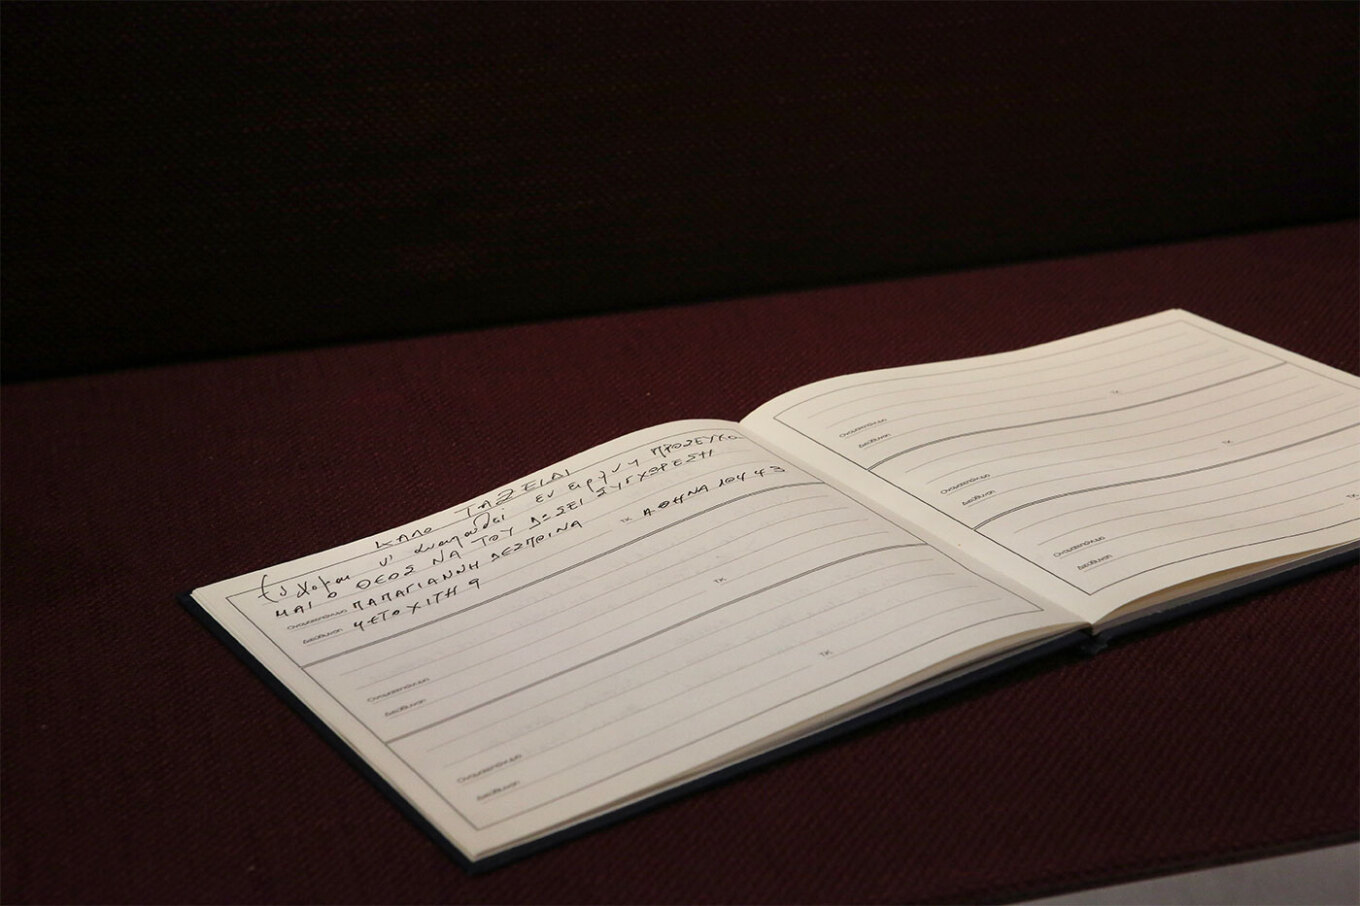 ΚΑΛΟ ΤΑΞΕΙΔΙ
Εύχομαι ν' αναπαυθεί εν ειρήνη ΠΡΟΣΕΥΧΟ
ΚΑΙ Ο ΘΕΟΣ ΝΑ ΤΟΥ ΔΩΣΕΙ ΣΥΓΧΩΡΕΣΗ
Ονοματεπώνυμο ΠΑΠΑΓΙΑΝΝΗ ΔΕΣΠΟΙΝΑ
Διεύθυνση ΜΕΤΟΧΙΤΗ 9 ΤΚ ΑΘΗΝΑ 104 43
ΤΚ
Ονοματεπώνυμο
Διεύθυνση
ΤΚ
Ονοματεπώνυμο
Διεύθυνση
ΤΚ
Ονοματεπώνυμο
Διεύθυνση
ΤΚ
Ονοματεπώνυμο
Διεύθυνση
Ονοματεπώνυμο
Διεύθυνση